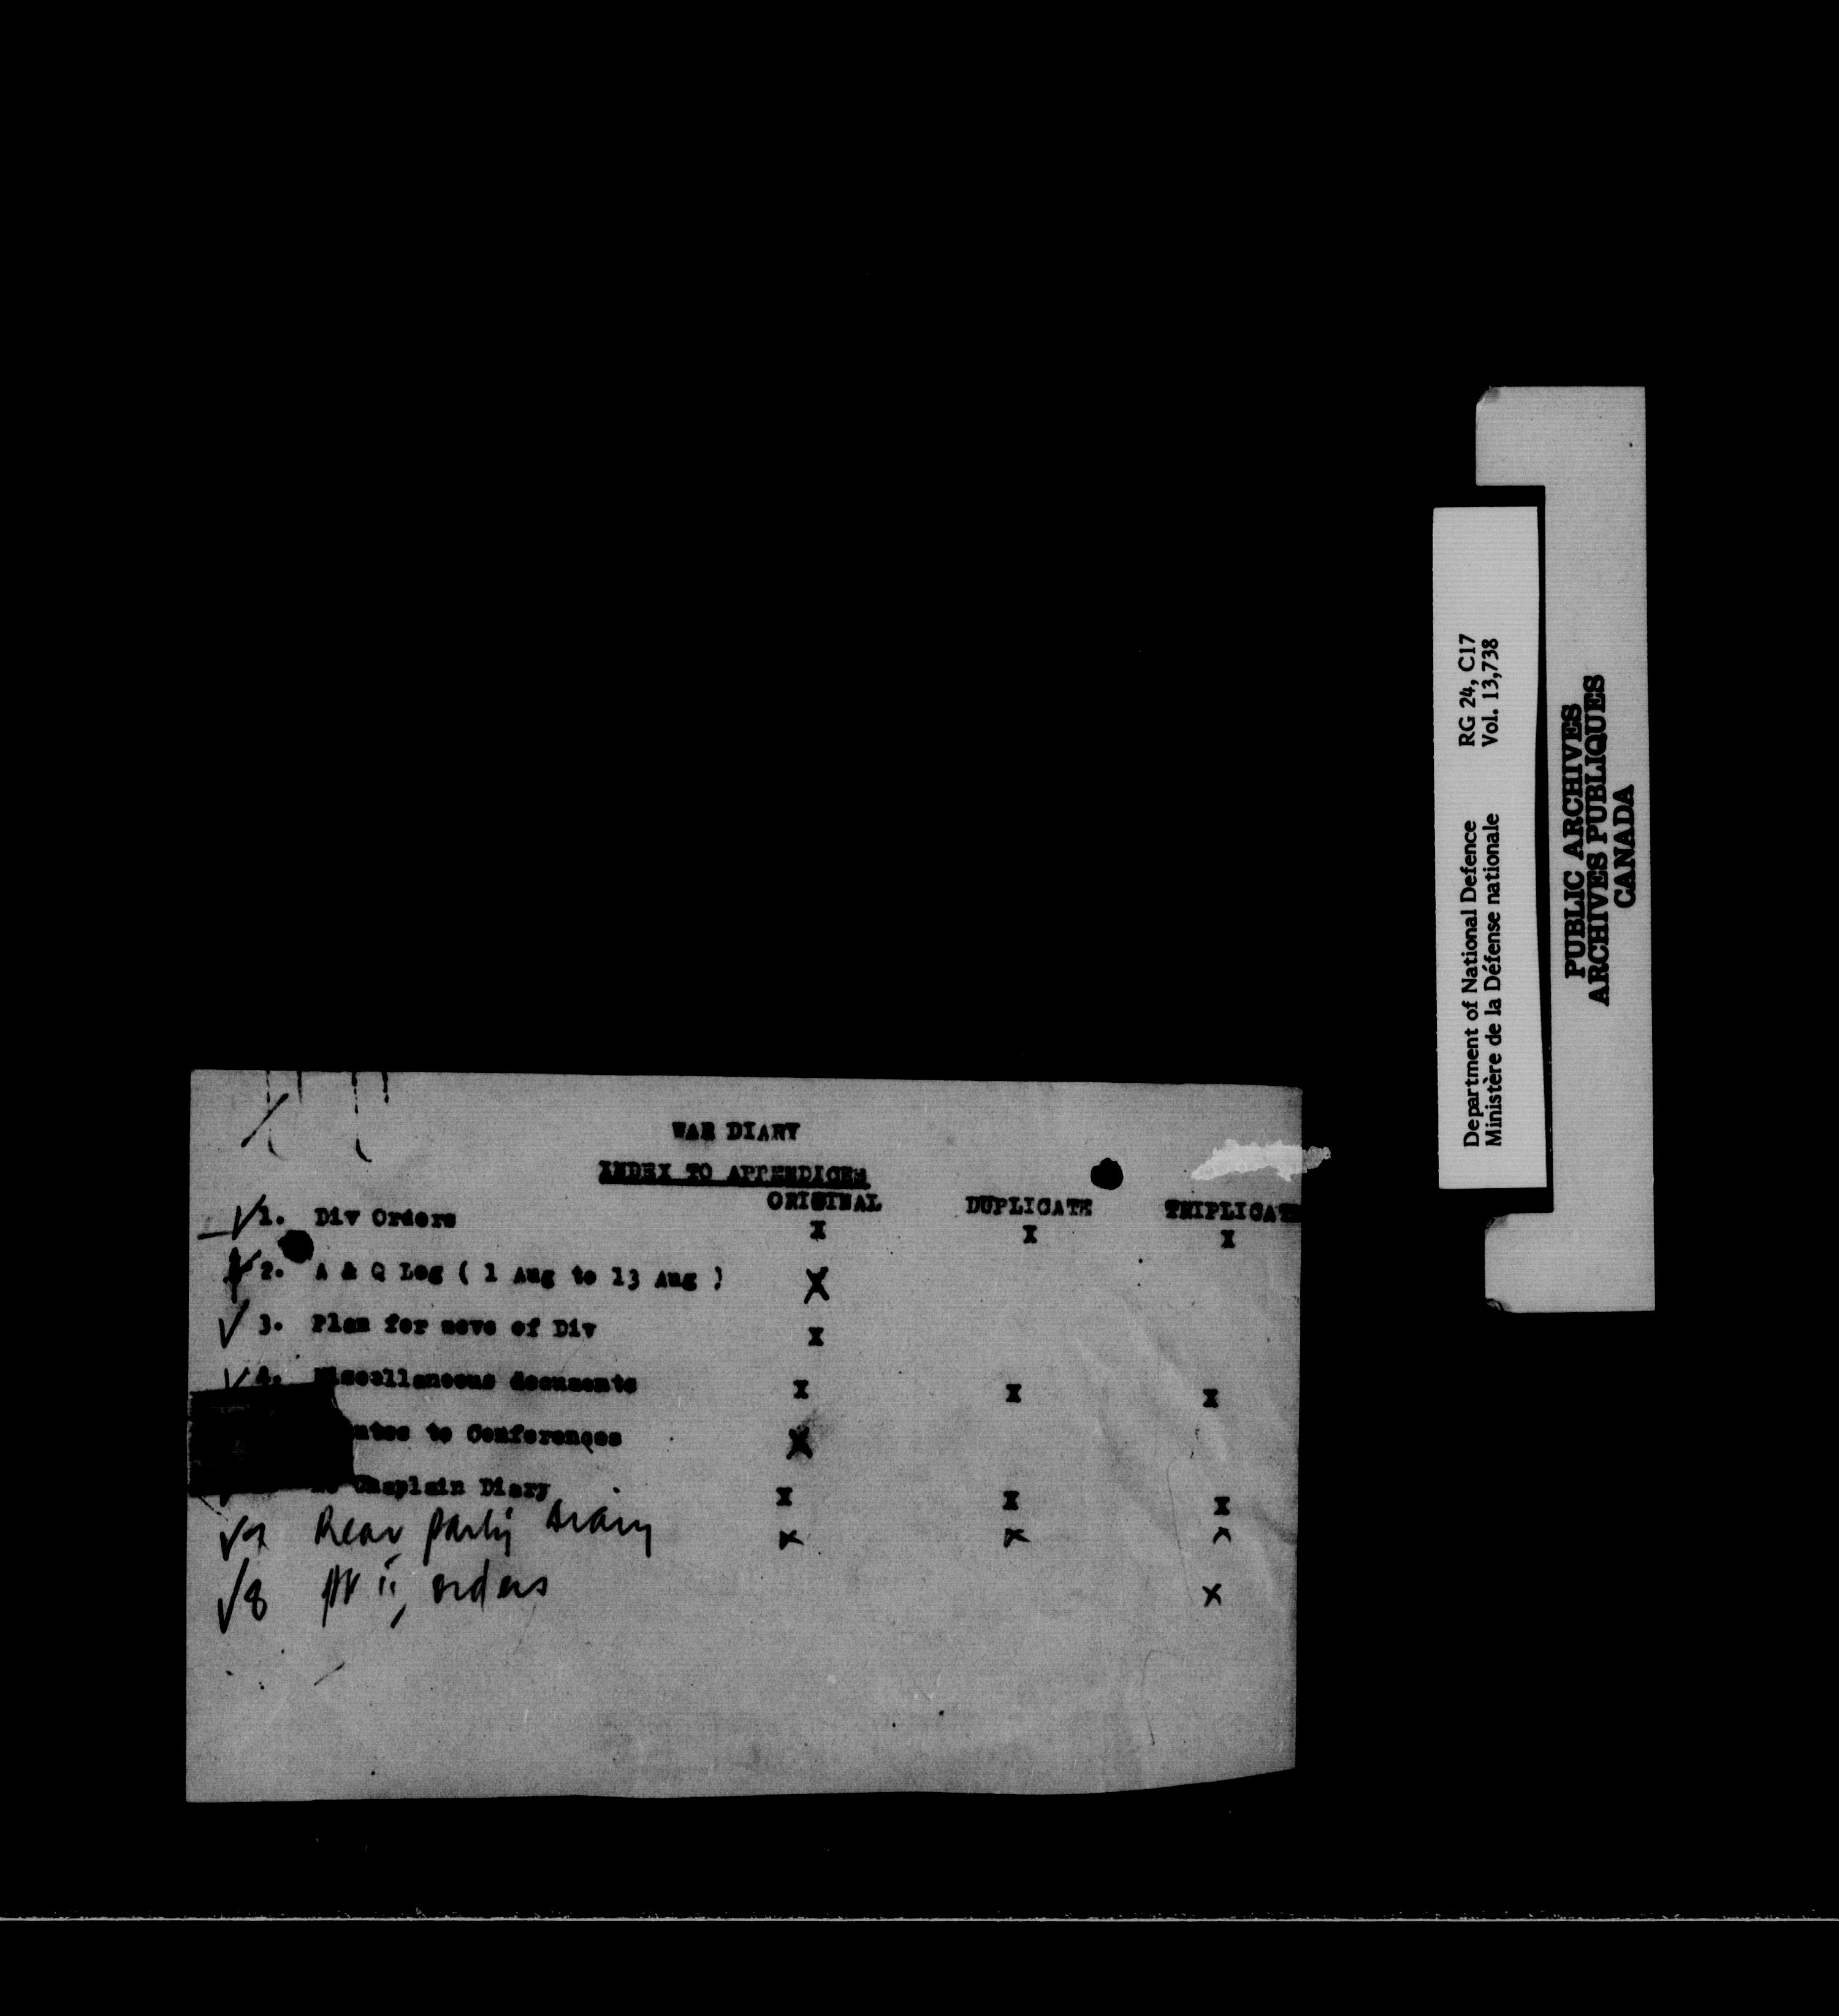 WAR DIARY
INDEX TO APPENDICES
ORIGINAL DUPLICATE TRIPLICATE
1. Div Orders X X X
2. A & Q Log ( 1 Aug to 13 Aug ) X
3. Plan for move of Div X
4. Miscellaneous documents X X X
to Conferences X
Chaplain Diary X X X
7 Rear party Diary X X X
8 orders X
Department of National Defence RG 24, C17
Ministère de la Défense nationale Vol. 13,738
PUBLIC ARCHIVES
ARCHIVES PUBLIQUES
CANADA